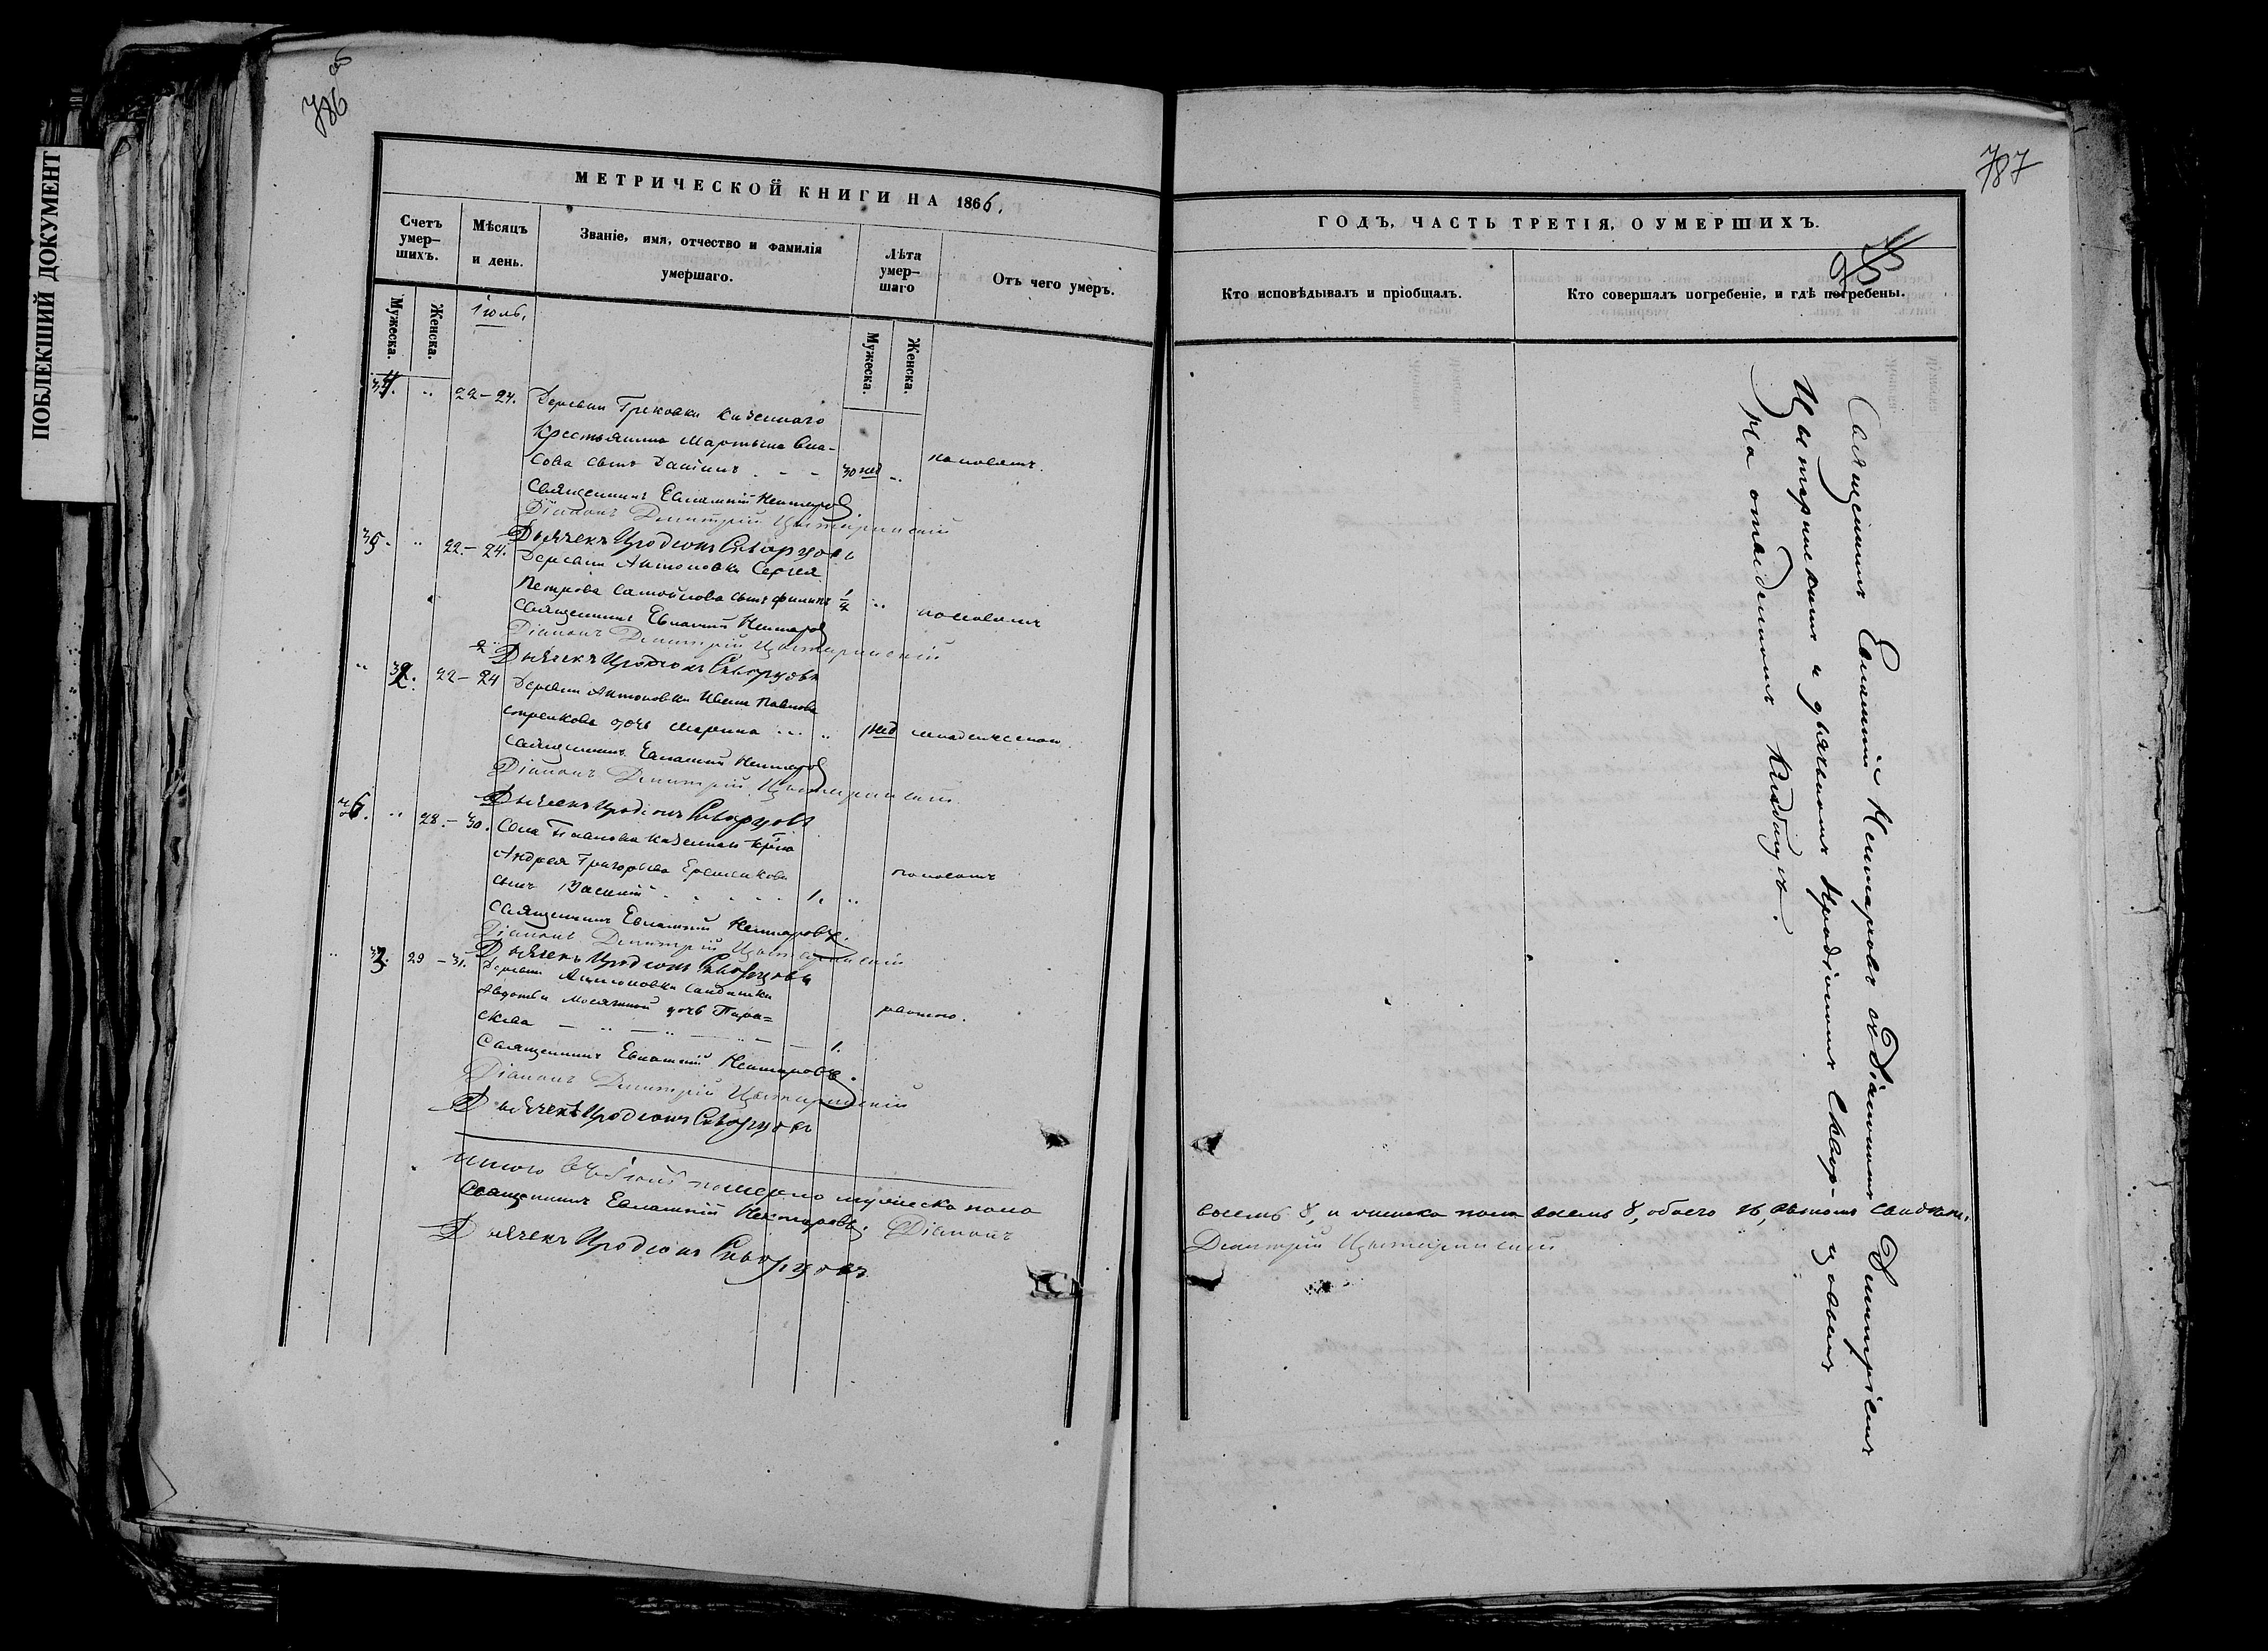 ПОБЛЕКШИЙ ДОКУМЕНТ
786
МЕТРИЧЕСКОЙ КНИГИ НА 1866.
Счетъ умер-шихъ.
Мѣсяцъ и день.
Званіе, имя, отчество и фамилія умершаго.
Лѣта умер-шаго
Отъ чего умеръ.
Мужеска.
Женска.
Іюль.
Мужеска.
Женска.
34. „ 22–24. Деревни Грековки казеннаго
Крестьянина Мартына Спа-
сова сынъ 30 нед „ поносомъ.
Священникъ Евлампій Нектаровъ.
Діаконъ Димитрій Цытеринскій
Дьячекъ Иродіонъ Скворцовъ
35. „ 22.–24. Деревни Антоновки Сергея
Петрова Самойлова сынъ Филипъ „ поносомъ
Священникъ Евлампій Нектаровъ
Діаконъ Димитрій Цытеринскій
Дьячекъ Иродіонъ Скворцовъ
„ 32. 22–24 Деревни Антоновки Ивана Павлова
дочь Марина „ 1 нед младенческою.
Священникъ Евлампій Нектаровъ
Діаконъ Димитрій Цытеринскій
Дьячекъ Иродіонъ Скворцовъ
36. „ 28.–30. Села казеннаго кр-на
Андрея Григорьева
сынъ Василій 1. „ поносомъ
Священникъ Евлампій Нектаровъ.
Діаконъ Димитрій Цытеринскій
Дьячекъ Иродіонъ Скворцовъ
„ 33. 29–31. Деревни Антоновки солдатки
Авдотьи дочь Пара=
скева 1. рвотою.
Священникъ Евлампій Нектаровъ.
Діаконъ Димитрій Цытеринскій
Дьячекъ Иродіонъ Скворцовъ
Итого въ Іюлѣ померло мужеска пола
Священникъ Евлампій Нектаровъ. Діаконъ
Дьячекъ Иродіонъ Скворцовъ
787
ГОДЪ, ЧАСТЬ ТРЕТІЯ, О УМЕРШИХЪ.
Кто исповѣдывалъ и пріобщалъ.
Кто совершалъ погребеніе, и гдѣ погребены.
Священникъ Евлампій Нектаровъ съ Діакономъ Димитріемъ
Цытеринскимъ и дьячкомъ Иродіономъ Сквор-цовымъ
На отведенномъ кладбищѣ.
восемь 8, и женска пола восемь 8, обоего 16,
Димитрій Цытеринскій